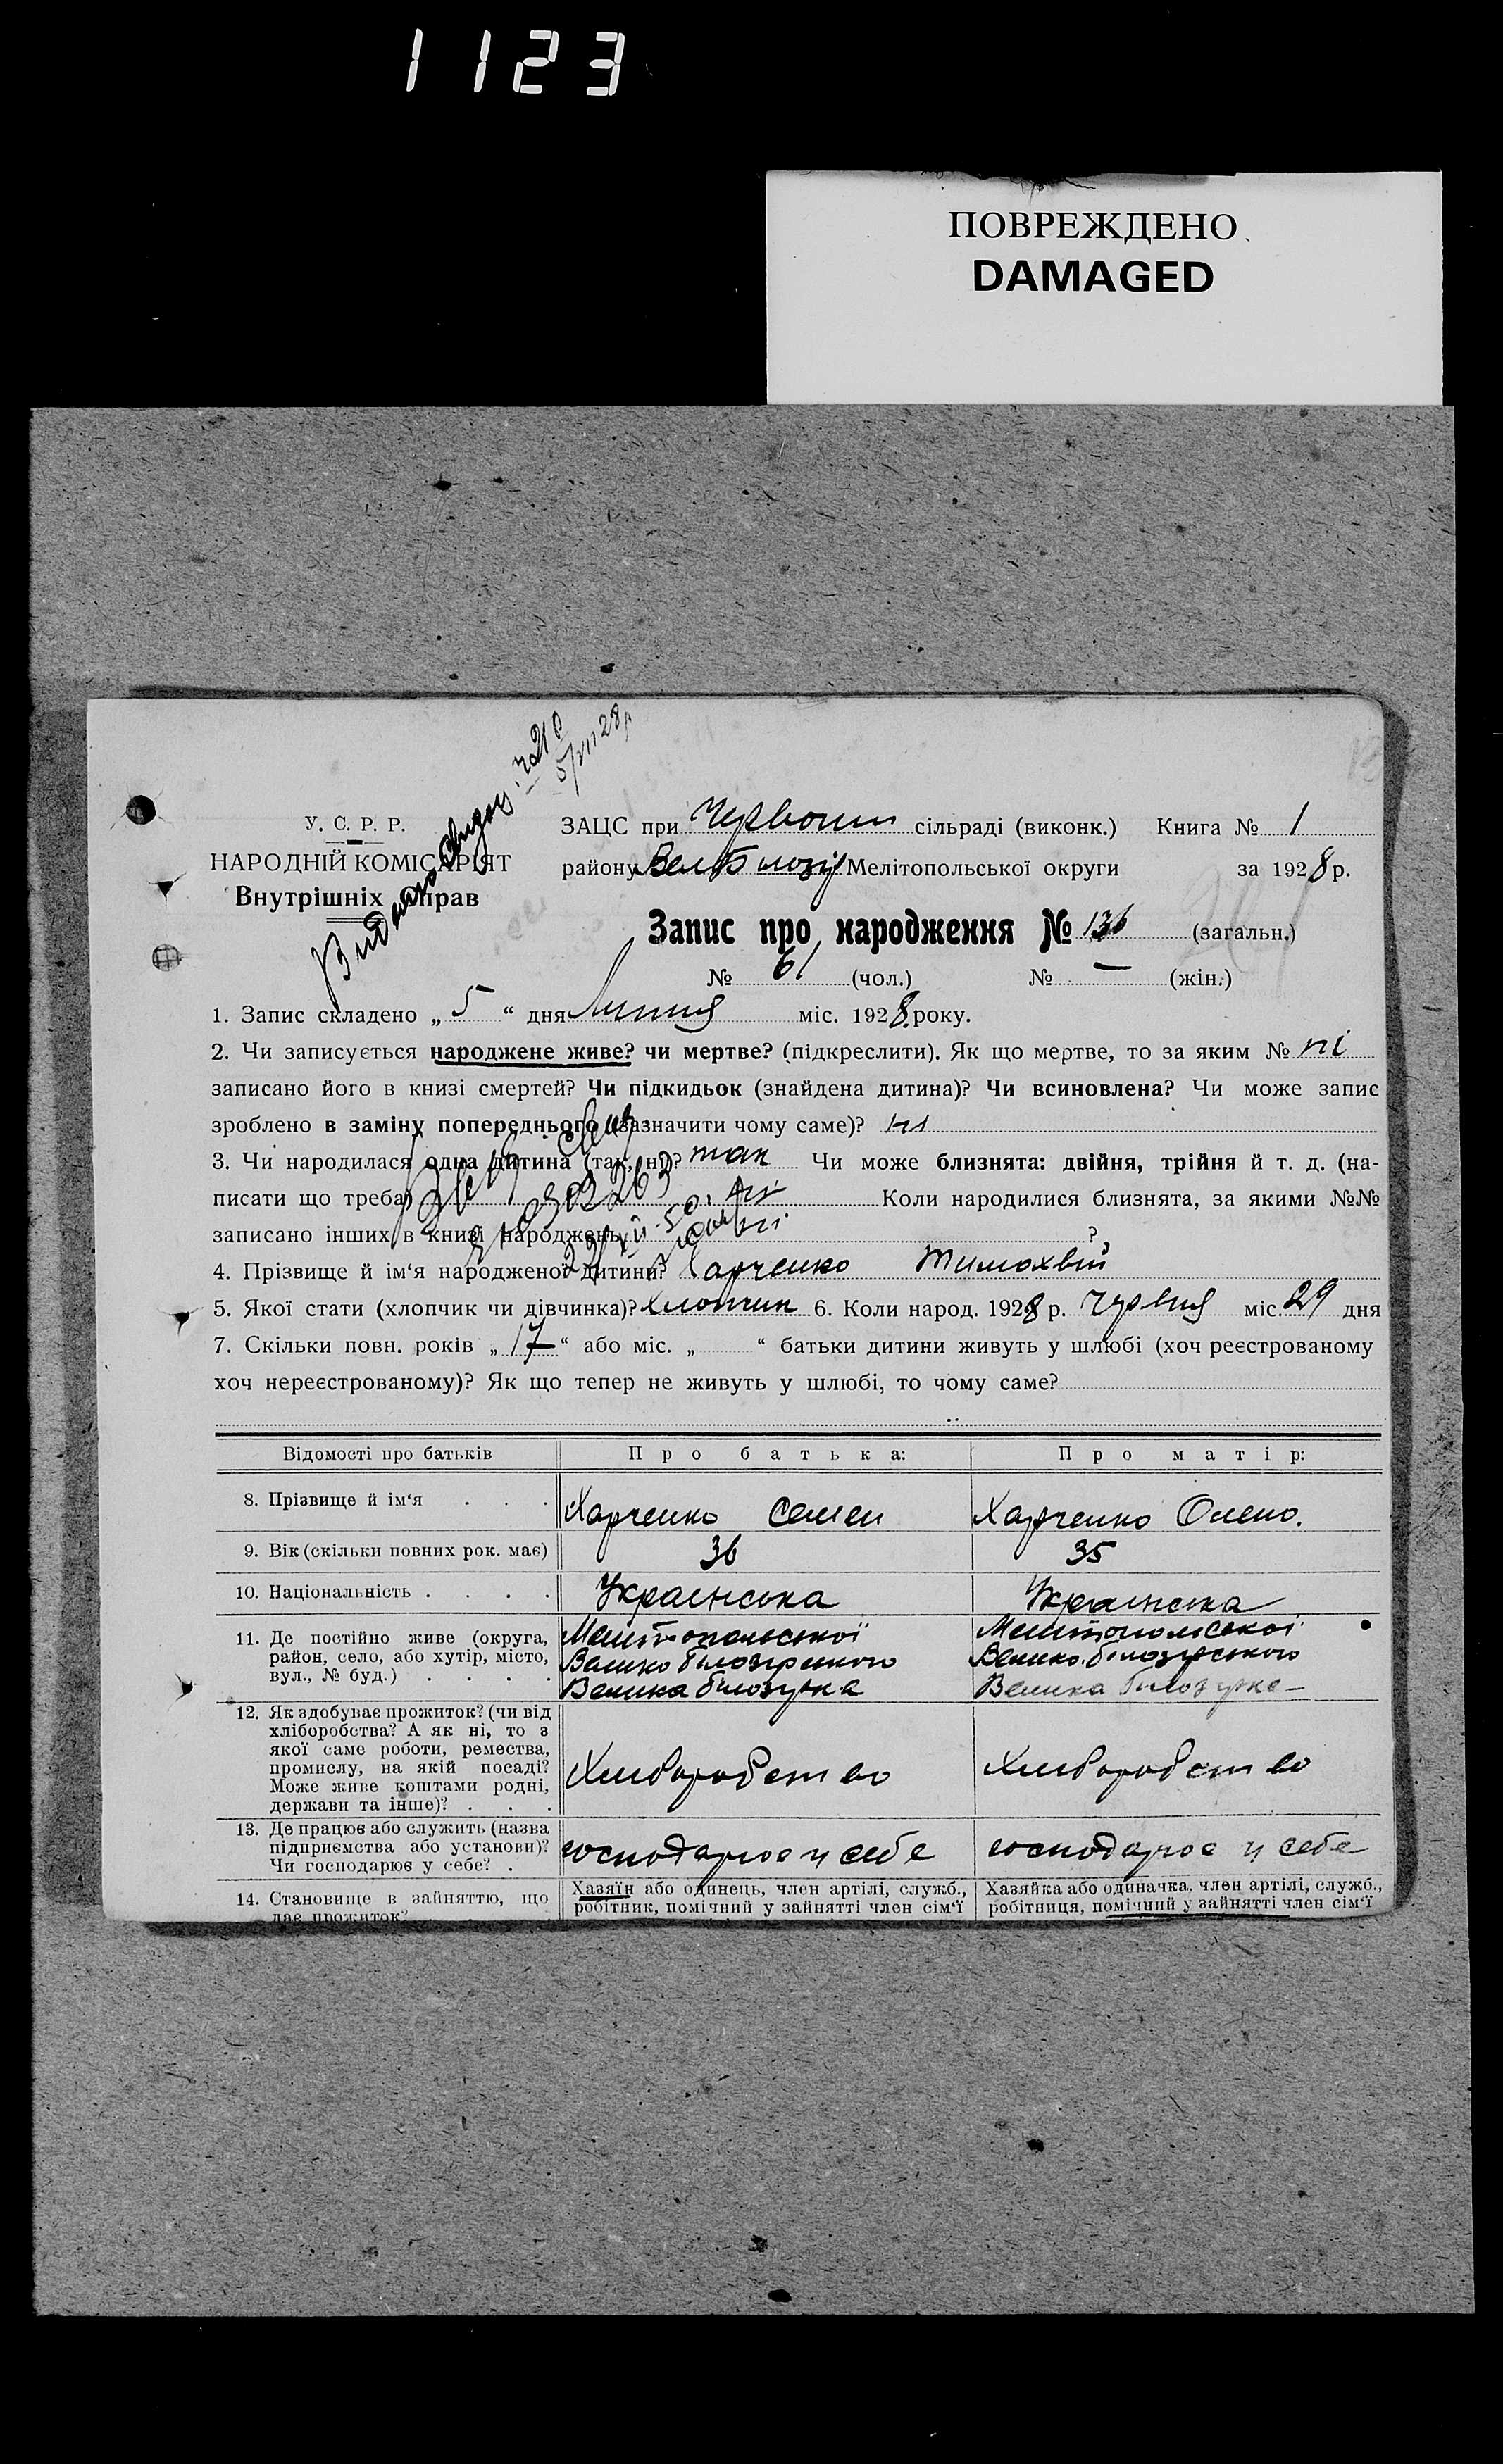 1123
ПОВРЕЖДЕНО
DAMAGED
У. С. Р. Р.
НАРОДНІЙ КОМІСАРІЯТ
Внутрішніх Справ
Видано
5/VII 28р
ЗАЦС при сільраді (виконк.) Книга № 1
району Мелітопольської округи за 1928 р.
Запис про народження № 136 (загальн.)
№ 61 (чол.) № — (жін.)
1. Запис складено „ 5 “ дня Липня міс. 1928 року.
2. Чи записується народжене живе? чи мертве? (підкреслити). Як що мертве, то за яким № ні
записано його в книзі смертей? Чи підкидьок (знайдена дитина)? Чи всиновлена? Чи може запис
зроблено в заміну попереднього (зазначити чому саме)? ні
3. Чи народилася одна дитина (так, ні)? так Чи може близнята: двійня, трійня й т. д. (на-
писати що треба) ні Коли народилися близнята, за якими №№
записано інших в книзі народжень ні ?
4. Прізвище й ім‘я народженої дитини? Харченко Тимохвій
5. Якої стати (хлопчик чи дівчинка)? Хлопчик 6. Коли народ. 1928 р. Червня міс. 29 дня
7. Скільки повн. років „ 17 “ або міс. „ “ батьки дитини живуть у шлюбі (хоч реєстрованому
хоч нереєстрованому)? Як що тепер не живуть у шлюбі, то чому саме?
Відомості про батьків Про батька: Про матір:
8. Прізвище й ім‘я . . . Харченко Семен Харченко Олено.
9. Вік (скільки повних рок. має) 36 35
10. Національність . . . . Украінська Украінска
11. Де постійно живе (округа, Мелітопольської Мелітопольської
район, село, або хутір, місто, Велико білозірського Велико білозірського
вул., № буд.) . . . . Велика білозірка Велика білозірка
12. Як здобуває прожиток? (чи від
хліборобства? А як ні, то з
якої саме роботи, ремества,
промислу, на якій посаді? Хліборобство Хліборобство
Може живе коштами родні,
держави та інше)? . . .
13. Де працює або служить (назва
підприємства або установи)? господарює у себе господарює у себе
Чи господарює у себе? .
14. Становище в зайняттю, що Хазяїн або одинець, член артілі, служб., Хазяйка або одиначка, член артілі, служб.,
дає прожиток? робітник, помічний у зайнятті член сім‘ї робітниця, помічний у зайнятті член сім‘ї